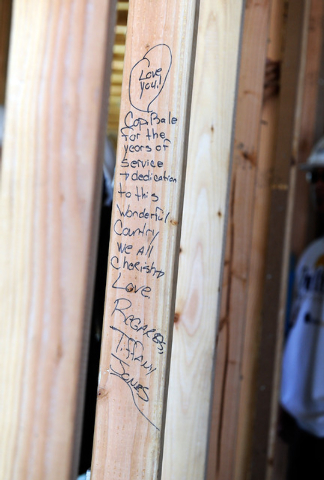 Love
you!
Cop Bale
for the
years of
Service
+ dedication
to this
Wonderful
Country
we all
Cherish
Love
Regards,
Tiffany
Jones